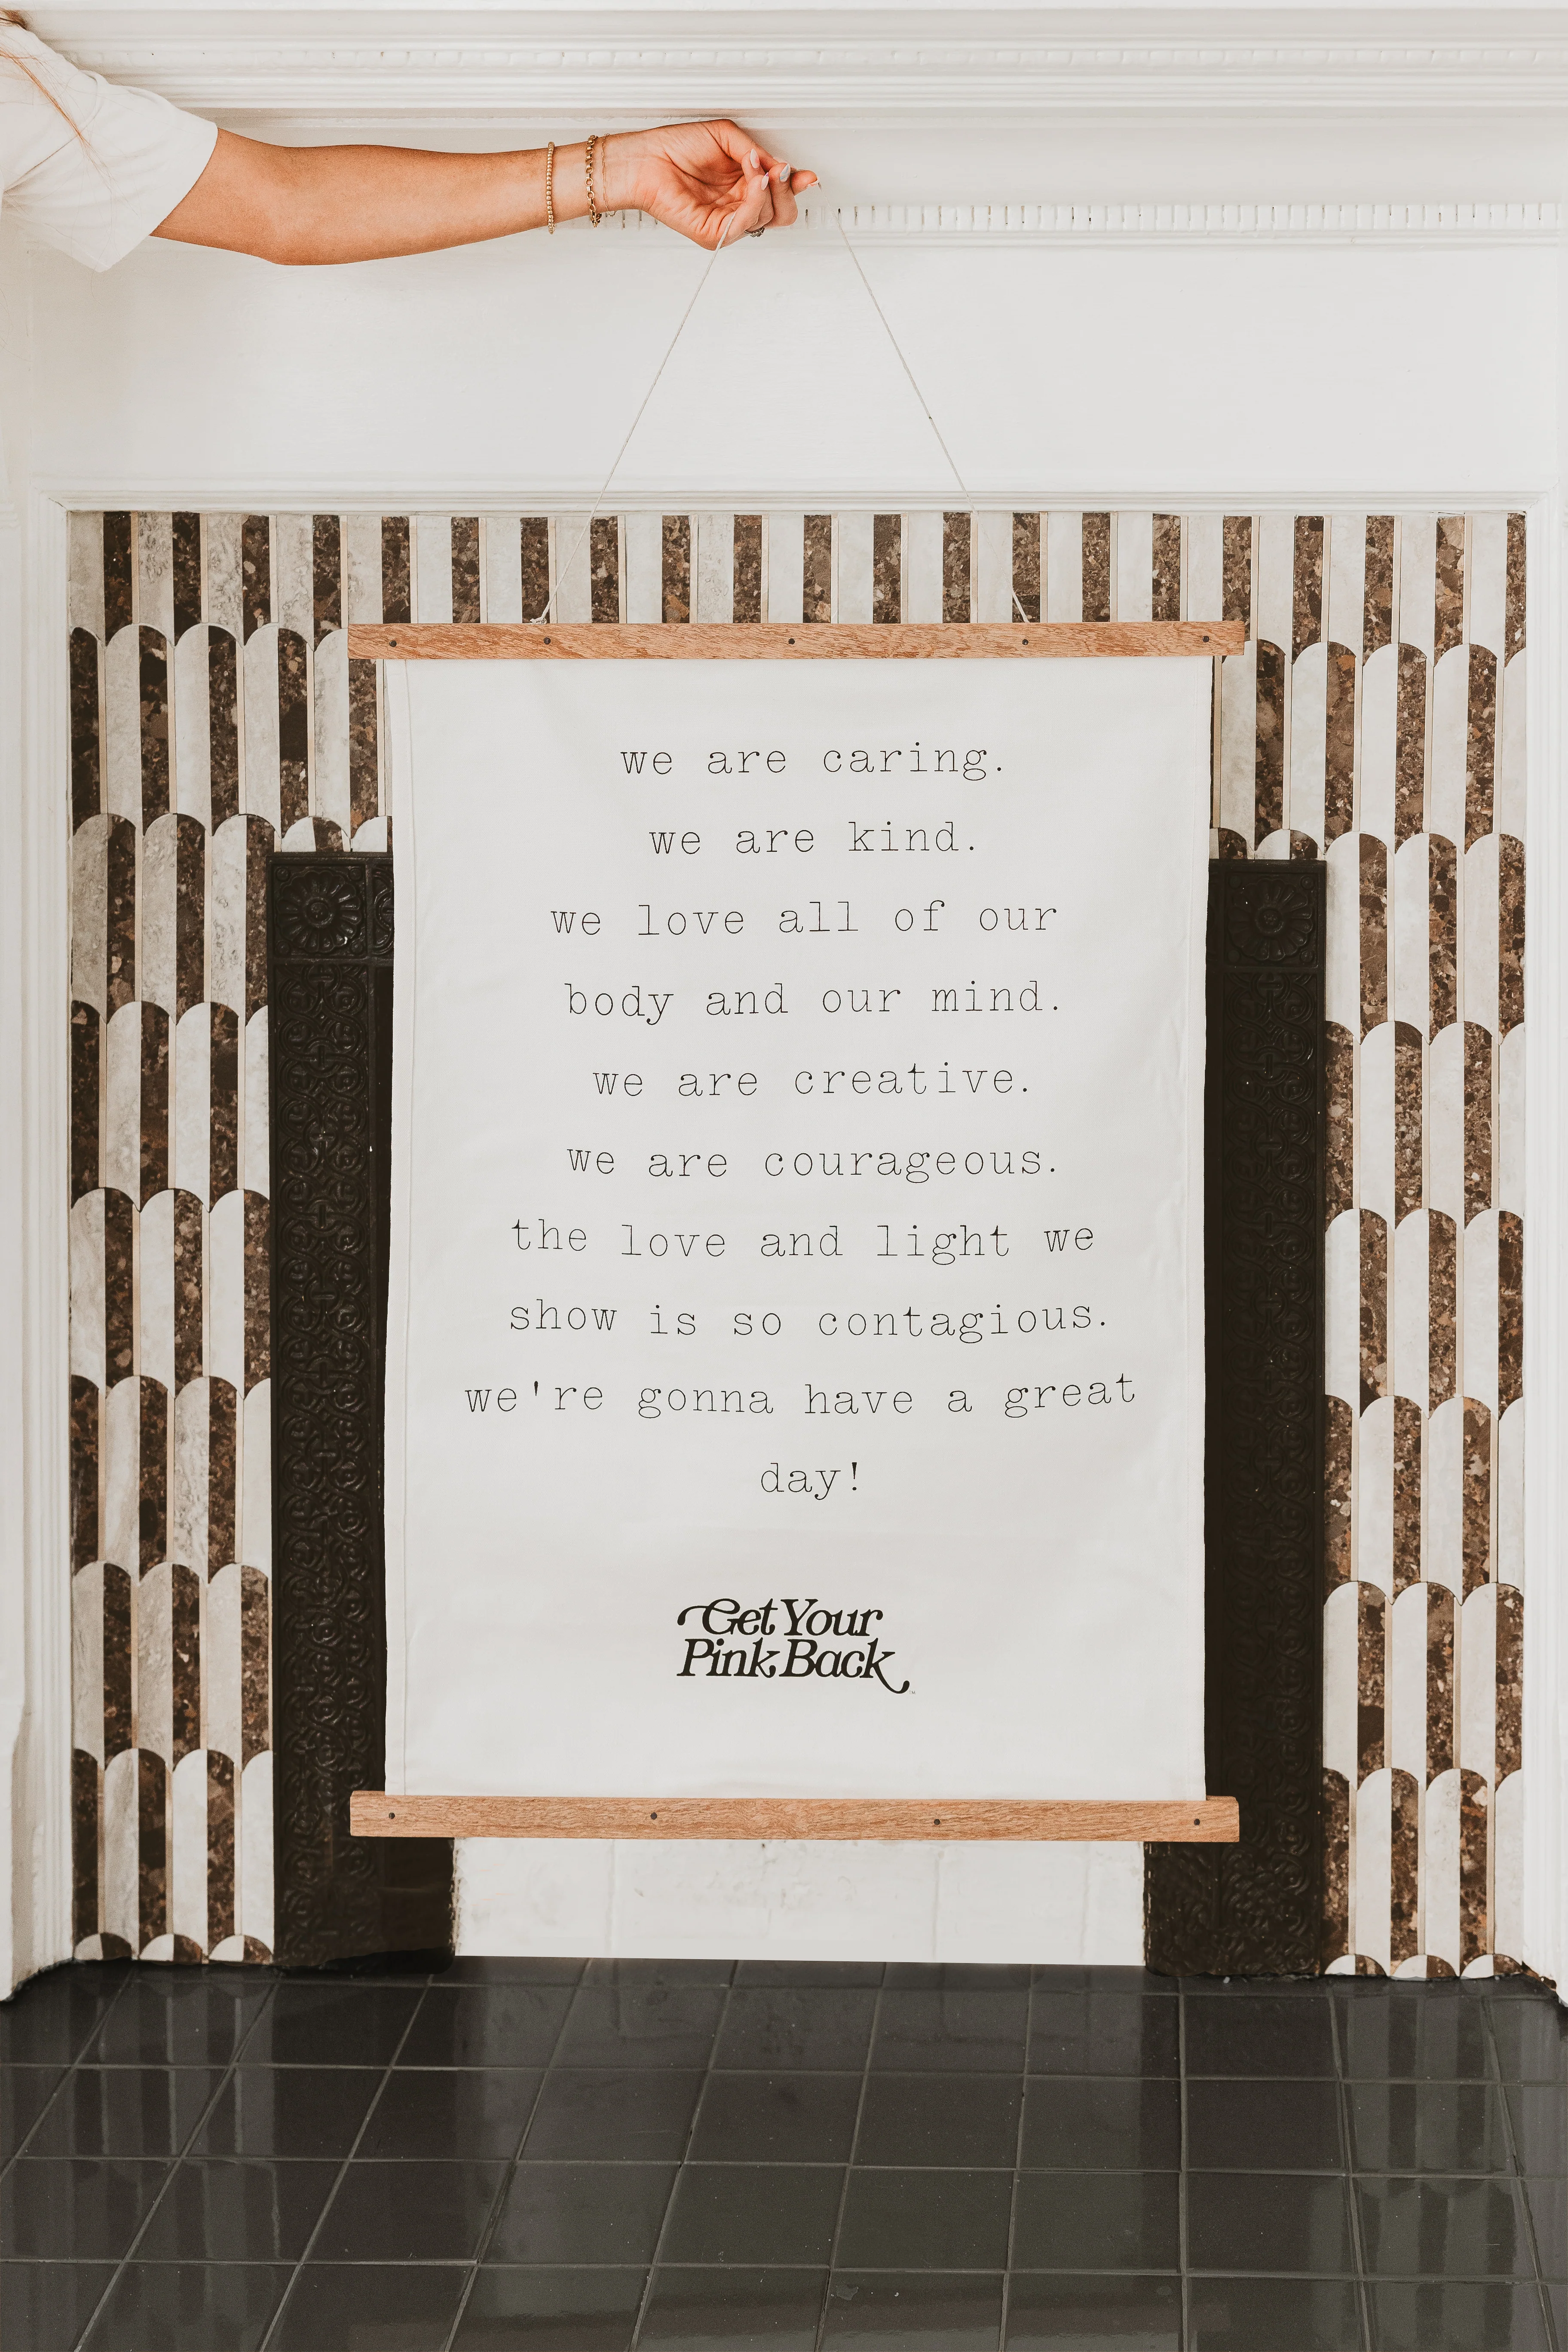 we are caring.
we are kind.
we love all of our
body and our mind.
we are creative.
we are courageous.
the love and light we
show is so contagious.
we're gonna have a great
day!
Get Your
Pink Back